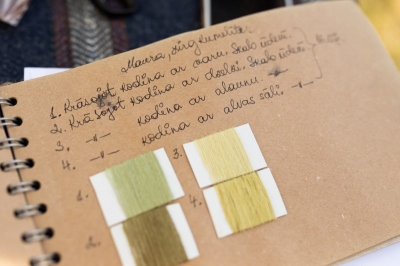 Maura, zirgkumelīte
1. Krāsojot kodina ar varu. Skābē ūdenī
2. Krāsojot kodina ar dzelzi. Skābē ūdenī
3. —"— kodina ar alaunu. —"—
4. —"— kodina ar alvas sāli. —"—
1.
3.
2.
4.